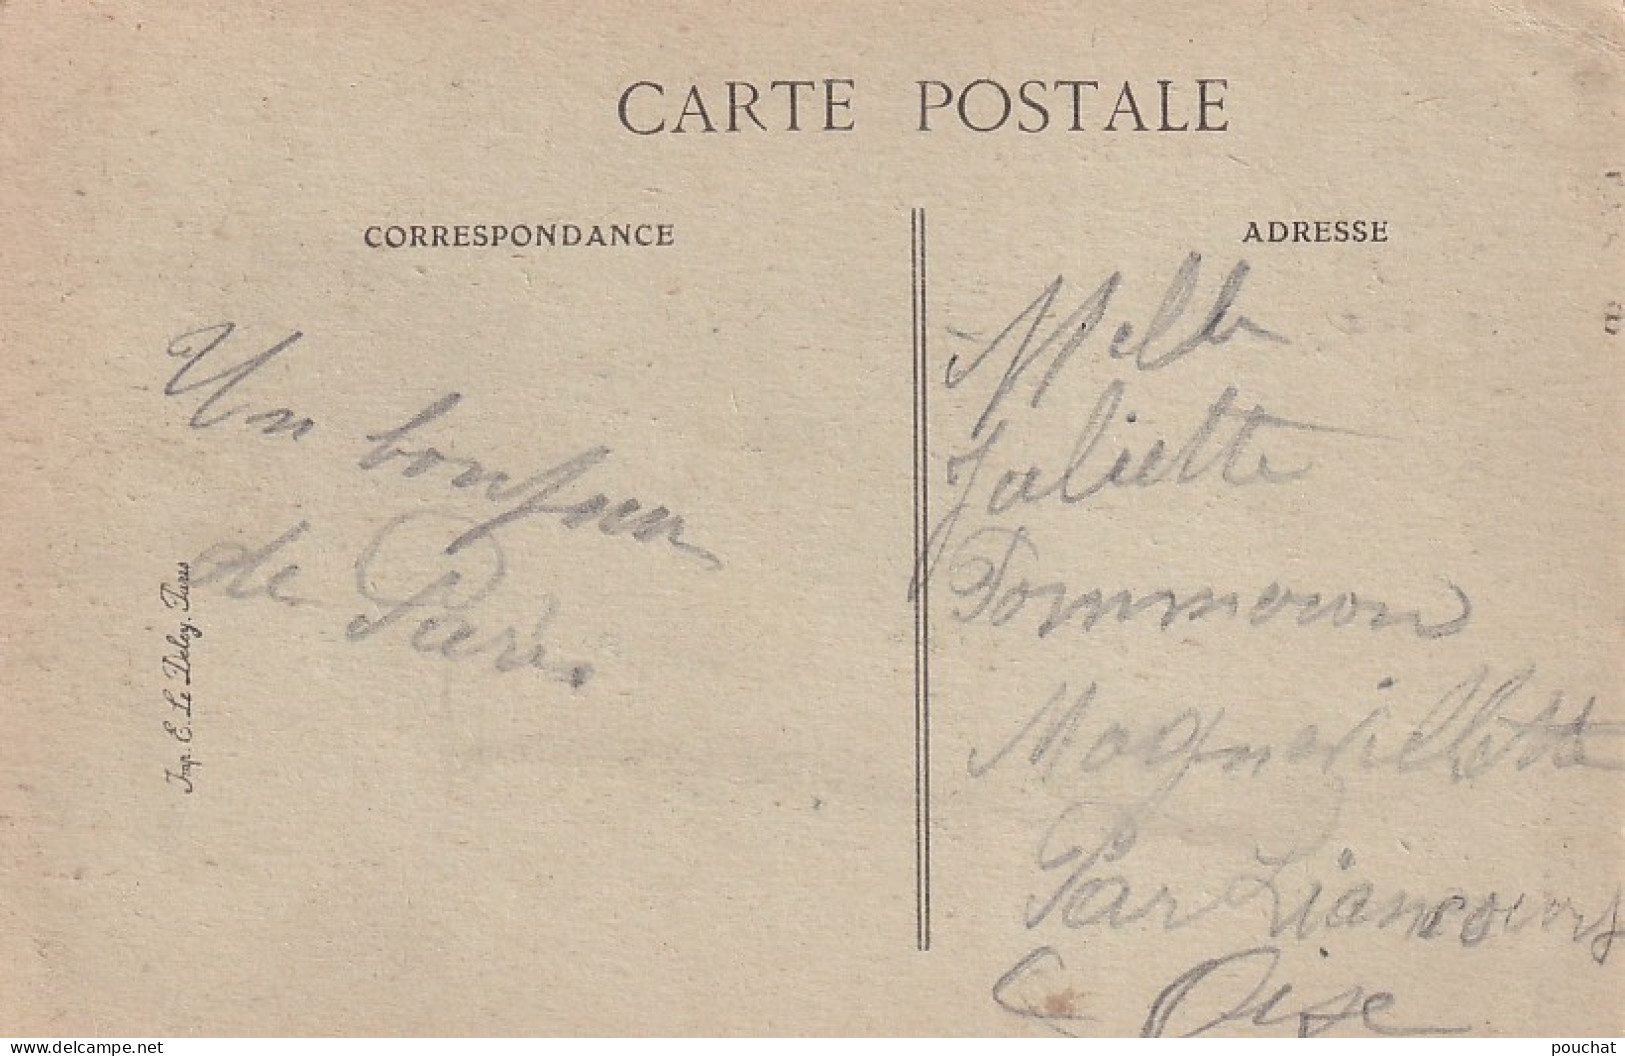 CARTE POSTALE
CORRESPONDANCE
ADRESSE
Un bonjour
de Paris
Melle
Juliette
Pommeron
Mognevillette
Par Liancourt
Oise
Imp. E. Le Deley, Paris
www.delcampe.net
pouchat